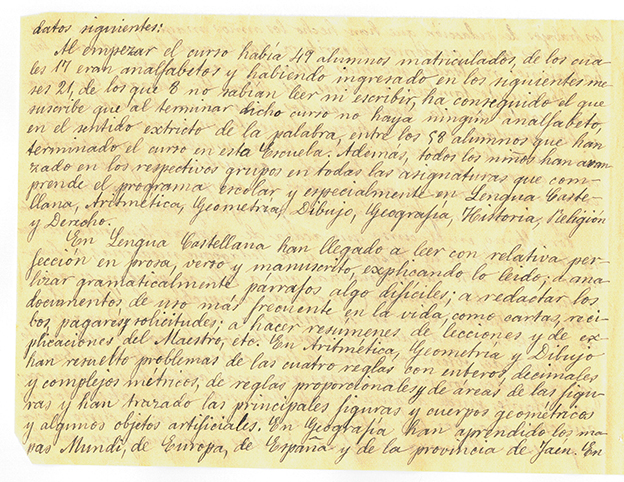 datos siguientes:
Al empezar el curso había 49 alumnos matriculados, de los cua-
les 17 eran analfabetos y habiendo ingresado en los siguientes me-
ses 21, de los que 8 no sabían leer ni escribir, ha conseguido el que
suscribe que al terminar dicho curso no haya ningún analfabeto,
en el sentido extricto de la palabra, entre los 58 alumnos que han
terminado el curso en esta Escuela. Además, todos los niños han avan-
zado en los respectivos grupos en todas las asignaturas que com-
prende el programa escolar y especialmente en Lengua Caste-
llana, Aritmética, Geometría, Dibujo, Geografía, Historia, Religión
y Derecho.
En Lengua Castellana han llegado a leer con relativa per-
fección en prosa, verso y manuscrito, explicando lo leido; a ana-
lizar gramaticalmente párrafos algo difíciles; a redactar los
documentos de uso más frecuente en la vida, como cartas, reci-
bos, pagarés y solicitudes; a hacer resumenes de lecciones y de ex-
plicaciones del Maestro, etc. En Aritmética, Geometría y Dibujo
han resuelto problemas de las cuatro reglas con enteros, decimales
y complejos métricos, de reglas proporcionales y de áreas de las figu-
ras y han trazado las principales figuras y cuerpos geométricos
y algunos objetos artificiales. En Geografía han aprendido los ma-
pas Mundi, de Europa, de España y de la provincia de Jaén. En